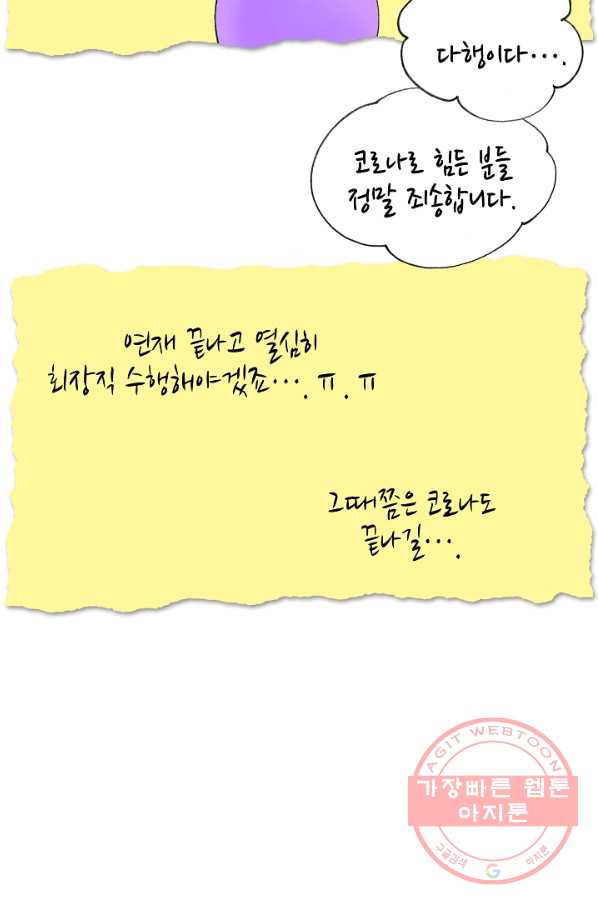 다행이다···.
코로나로 힘든 분들
정말 죄송합니다.
연재 끝나고 열심히
회장직 수행해야겠죠···. ㅠ.ㅠ
그때쯤은 코로나도
끝나길···.
AGIT WEBTOON
가장빠른 웹툰
아지툰
구글검색 G 아지툰